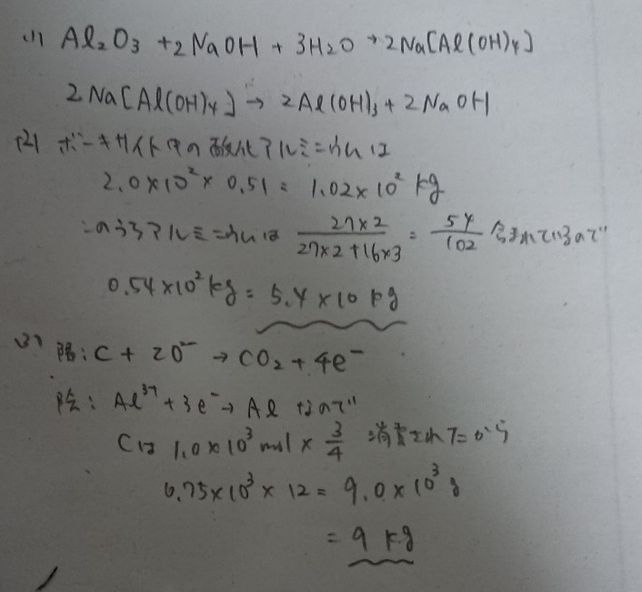 (1) Al₂O₃ + 2NaOH + 3H₂O → 2Na[Al(OH)₄]
2Na[Al(OH)₄] → 2Al(OH)₃ + 2NaOH
(2) ボーキサイト中の酸化アルミニウムは
2.0×10²×0.51 = 1.02×10² kg
このうちアルミニウムは 27×2/27×2+16×3 = 54/102 含まれているので
0.54×10² kg = 5.4×10 kg
(3) 陽: C + 2O²⁻ → CO₂ + 4e⁻
陰: Al³⁺ + 3e⁻ → Al なので
Cは 1.0×10³ mol × 3/4 消費されたから
0.75×10³ × 12 = 9.0×10³ g
= 9 kg